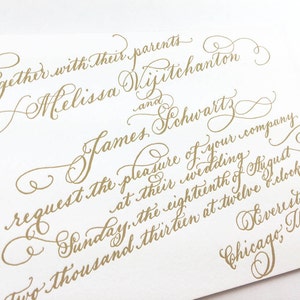 together with their parents
Melissa Vijitchanton
and
James Schwartz
request the pleasure of your company
at their wedding
Sunday, the eighteenth of August
Two thousand thirteen at twelve o'clock
Everest
Chicago,